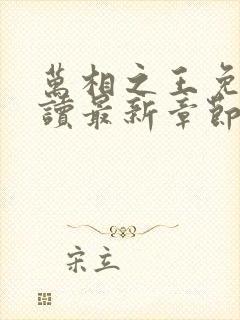 萬相之王免
讀最新章節
宋立